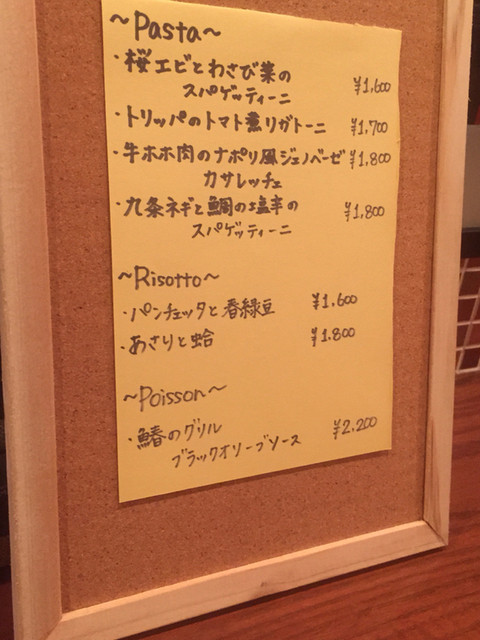 ~Pasta~
・桜エビとわさび菜の
スパゲッティーニ ¥1,600
・トリッパのトマト煮リガトーニ ¥1,700
・牛ホホ肉のナポリ風ジェノベーゼ ¥1,800
カサレッチェ
・九条ネギと鯛の塩辛の ¥1,800
スパゲッティーニ
~Risotto~
・パンチェッタと春緑豆 ¥1,600
・あさりと蛤 ¥1,800
~Poisson~
・鰆のグリル ¥2,200
ブラックオリーブソース